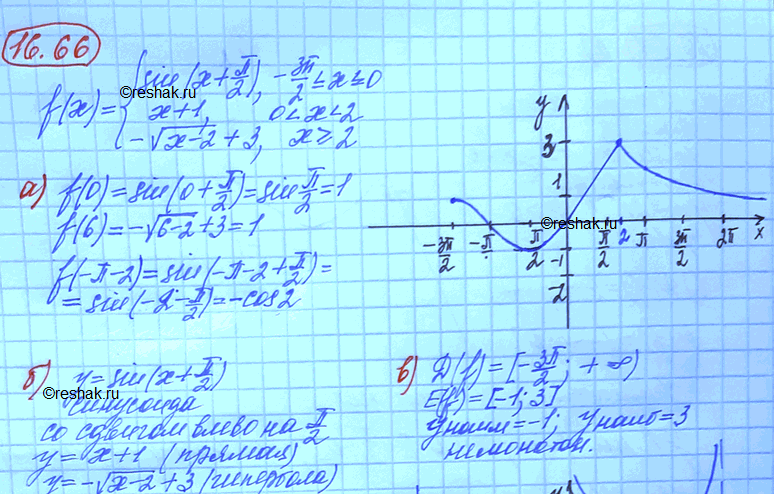 16.66
f(x) = { sin(x + π/2), -3π/2 ≤ x ≤ 0
x+1, 0 < x < 2
-√(x-2) + 3, x ≥ 2
©reshak.ru
а) f(0) = sin(0 + π/2) = sin π/2 = 1
f(6) = -√(6-2) + 3 = 1
f(-π-2) = sin(-π-2+π/2) =
= sin(-2-π/2) = -cos2
y
3
1
-1
-2
-3π/2 -π π/2 π/2 2 π 3π/2 2π x
©reshak.ru
б) y = sin(x + π/2)
©reshak.ru
синусоида
со сдвигом влево на π/2
y = x+1 (прямая)
y = -√(x-2) + 3 (гипербола)
в) D(f) = [-3π/2; +∞)
E(f) = [-1; 3]
yнаим = -1; yнаиб = 3
немонотон.
y